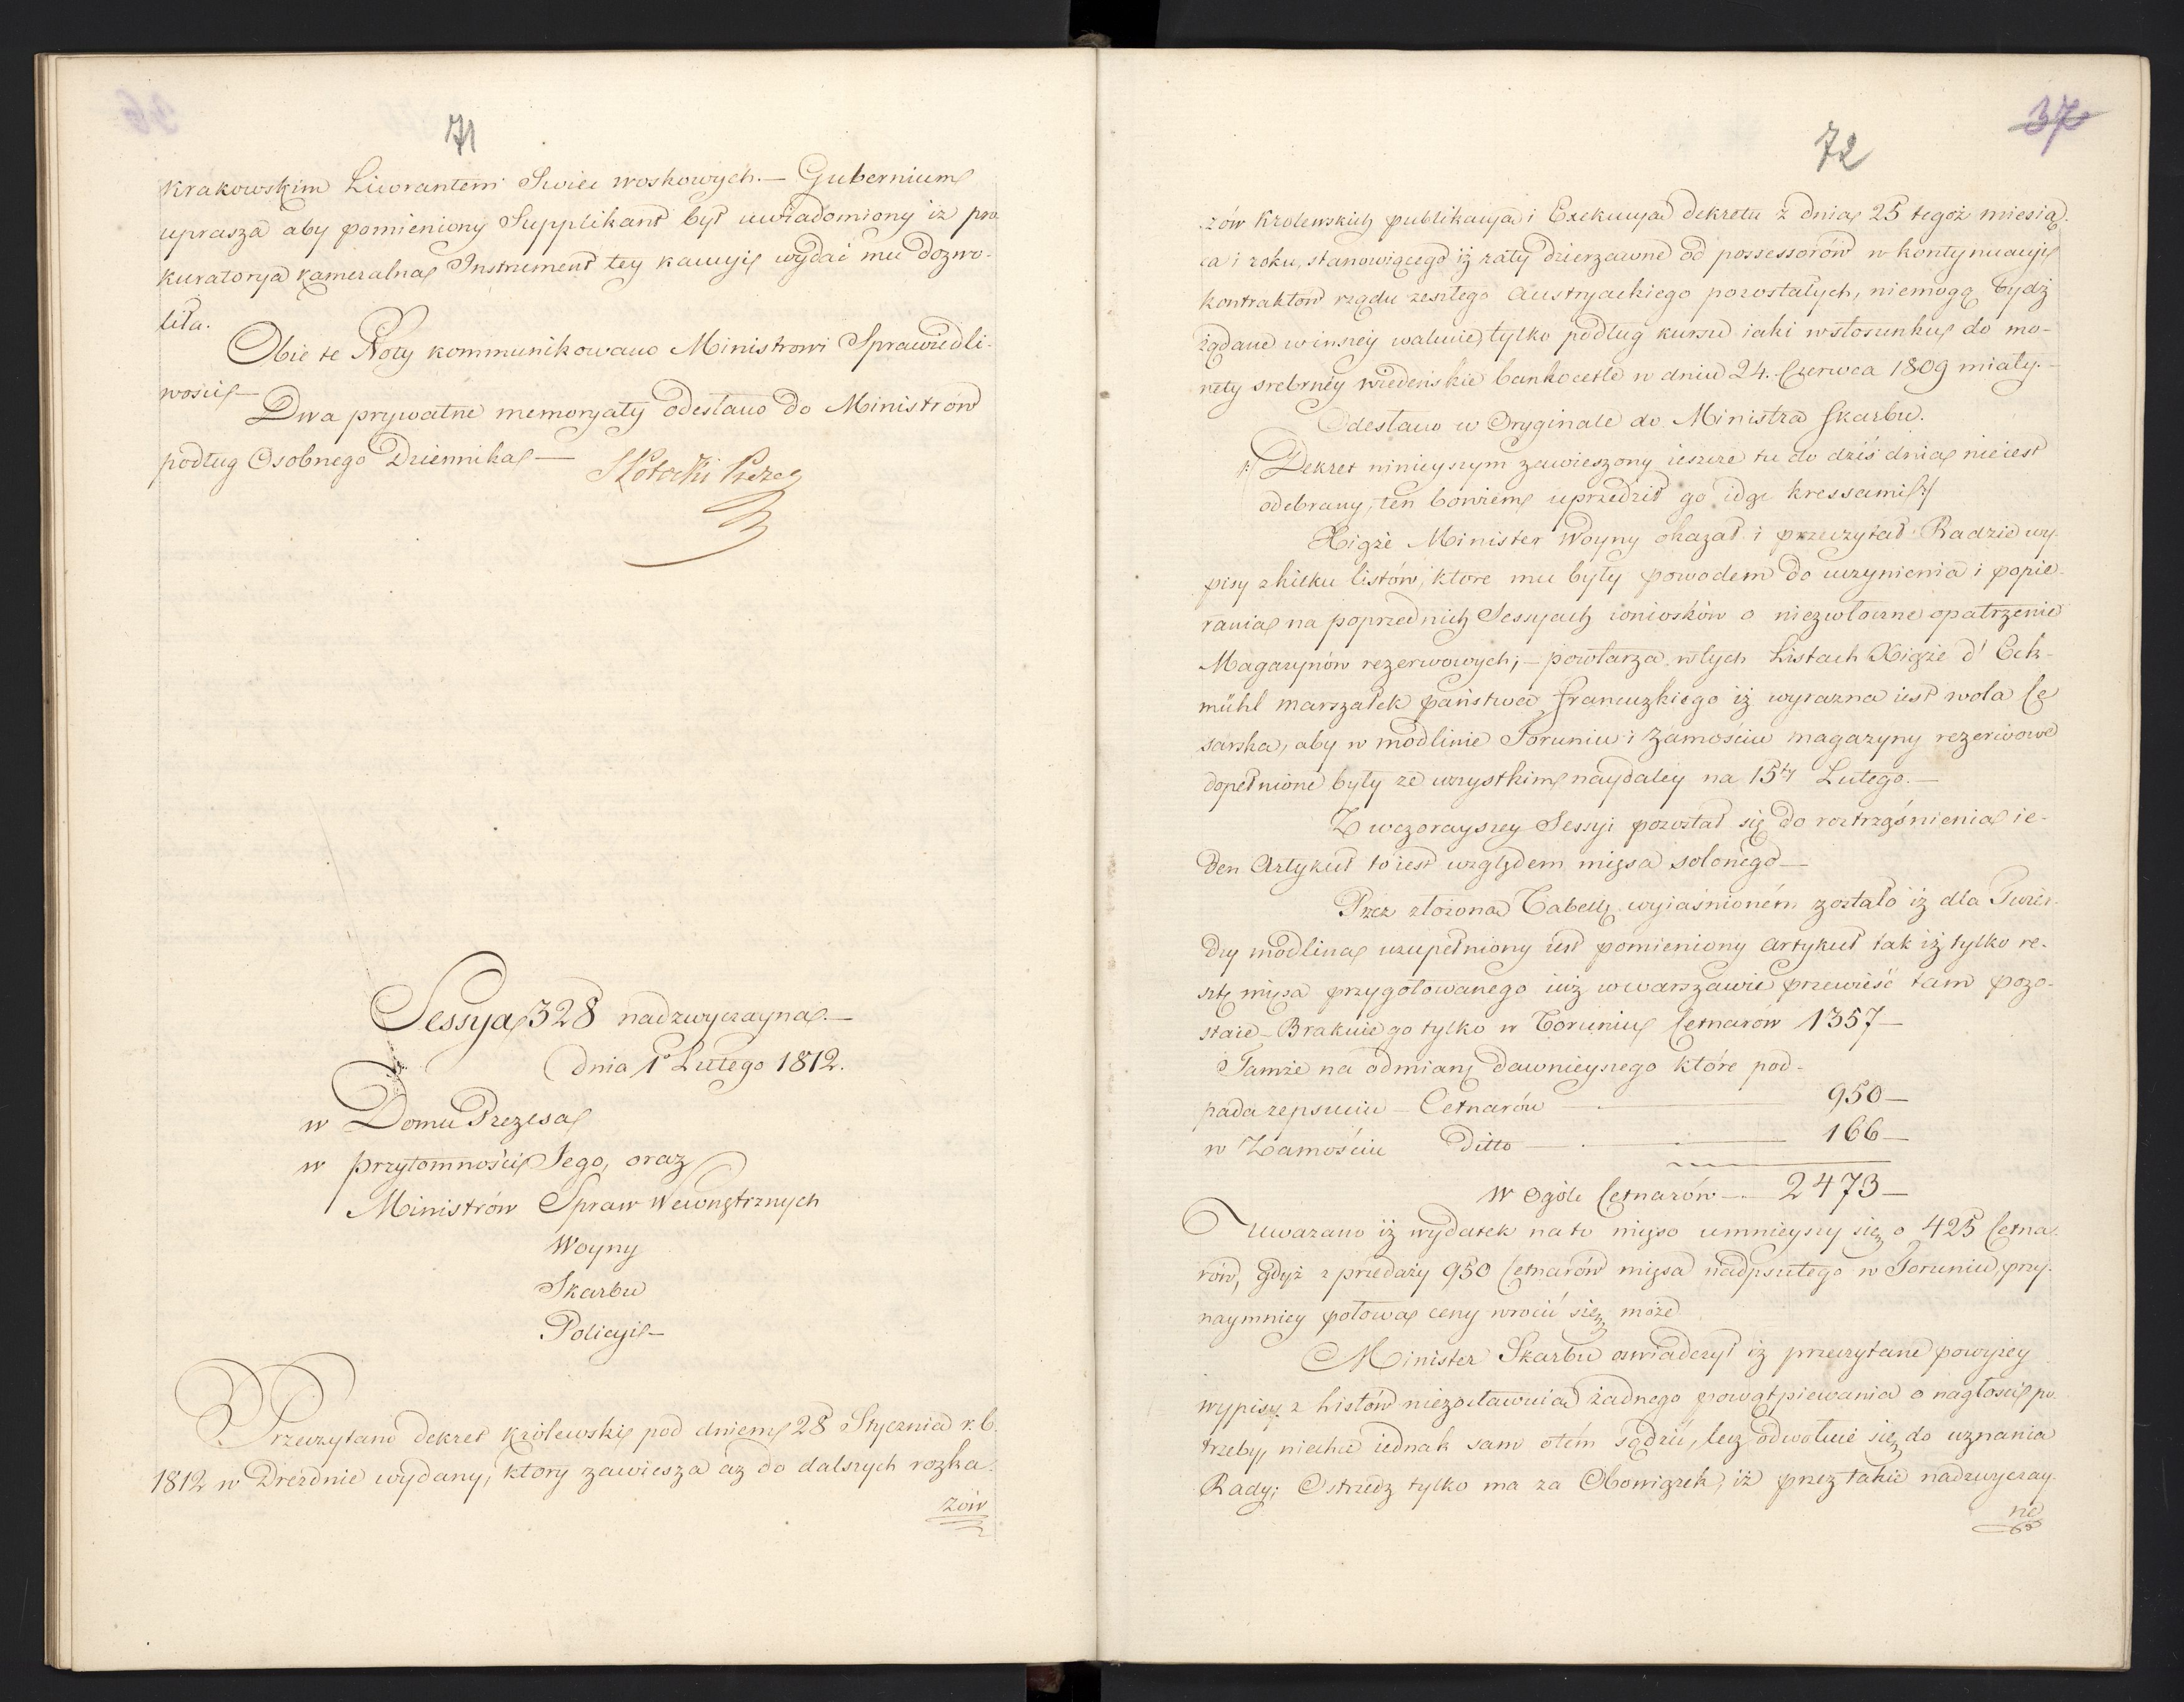 71
Krakowskim Liwrantem Swiec woskowych. — Gubernium
uprasza aby pomieniony Supplikant był uwiadomiony iz pro
kuratorya kameralna Instrument tey kaucyi wydać mu dozwo-
liła.
Obie te Noty kommunikowano Ministrowi Sprawiedli-
wości —
Dwa prywatne memoryały odesłano do Ministrów
podług Osobnego Dziennika —
SPotocki Prezes
Sessya 328 nadzwyczayna. —
dnia 1o Lutego 1812.
w Domu Prezesa
w przytomności Jego, oraz
Ministrów Spraw Wewnętrznych
Woyny
Skarbu
Policyi —
Przeczytano dekret królewski pod dniem 28 Stycznia r. b.
1812 w Dreźdnie wydany, który zawiesza aż do dalszych rozka-
zów
37
72
zów Krolewskich publikacya i Exekucya dekretu z dnia 25 tegoż miesią-
ca i roku, stanowiącego iż raty dzierzawne od possessorów w kontynuacyi
kontraktów rządu zeszłego Austryackiego pozostałych, niemogą bydź
żądane w inszey walucie, tylko podług kursu iaki w stosunku do mo-
nety srebrney wiedeńskie bankocetle w dniu 24. Czerwca 1809 miały. —
Odesłano w Oryginale do Ministra Skarbu.
/: Dekret ninieyszym zawieszony ieszcze tu do dziś dnia nieiest
odebrany, ten bowiem uprzedził go idąc kressami :/
Xiąże Minister Woyny okazał i przeczytał Radzie wy-
pisy z kilku listów, ktore mu były powodem do uczynienia i popie-
rania na poprzednich Sessyach wniosków o niezwłoczne opatrzenie
Magazynów rezerwowych; — powtarza w tych Listach Xiąże d' Eck-
mühl marszałek państwa francuzkiego iż wyrazna iest wola Ce
sarska, aby w modlinie Toruniu i Zamościu magazyny rezerwowe
dopełnione były ze wszystkim naydaley na 15ty Lutego. —
Z wczorayszey Sessyi pozostał się do roztrząśnienia ie-
den Artykuł to iest względem mięsa solonego —
Przez złożona Tabellę wyiaśnioném zostało iż dla Twier-
dzy modlina uzupełniony iest pomieniony artykuł tak iż tylko re-
sztę mięsa przygotowanego iuż w warszawie przewieść tam pozo-
staie — Brakuie go tylko w Toruniu Cetnarów 1357 —
Tamże na odmianę dawnieyszego które pod-
pada zepsuciu — Cetnarów — 950 —
w Zamościu Ditto — 166 —
W ogóle Cetnarów — 2473 —
Uwazano iż wydatek na to mięso umnieyszy się o 425 Cetna-
rów, gdyż z przedaży 950 Cetnarów mięsa nadpsutego w Toruniu, przy-
naymniey połowa ceny wrocić się może
Minister Skarbu oswiadczył iż przeczytane powyżey
wypisy z Listów niezostawuia żadnego powątpiewania o nagłości po-
trzeby, niechce iednak sam otém sądzić, lecz odwołuie się do uznania
Rady; Ostrzedz tylko ma za Obowiązek, iż przez takie nadzwyczay-
ne